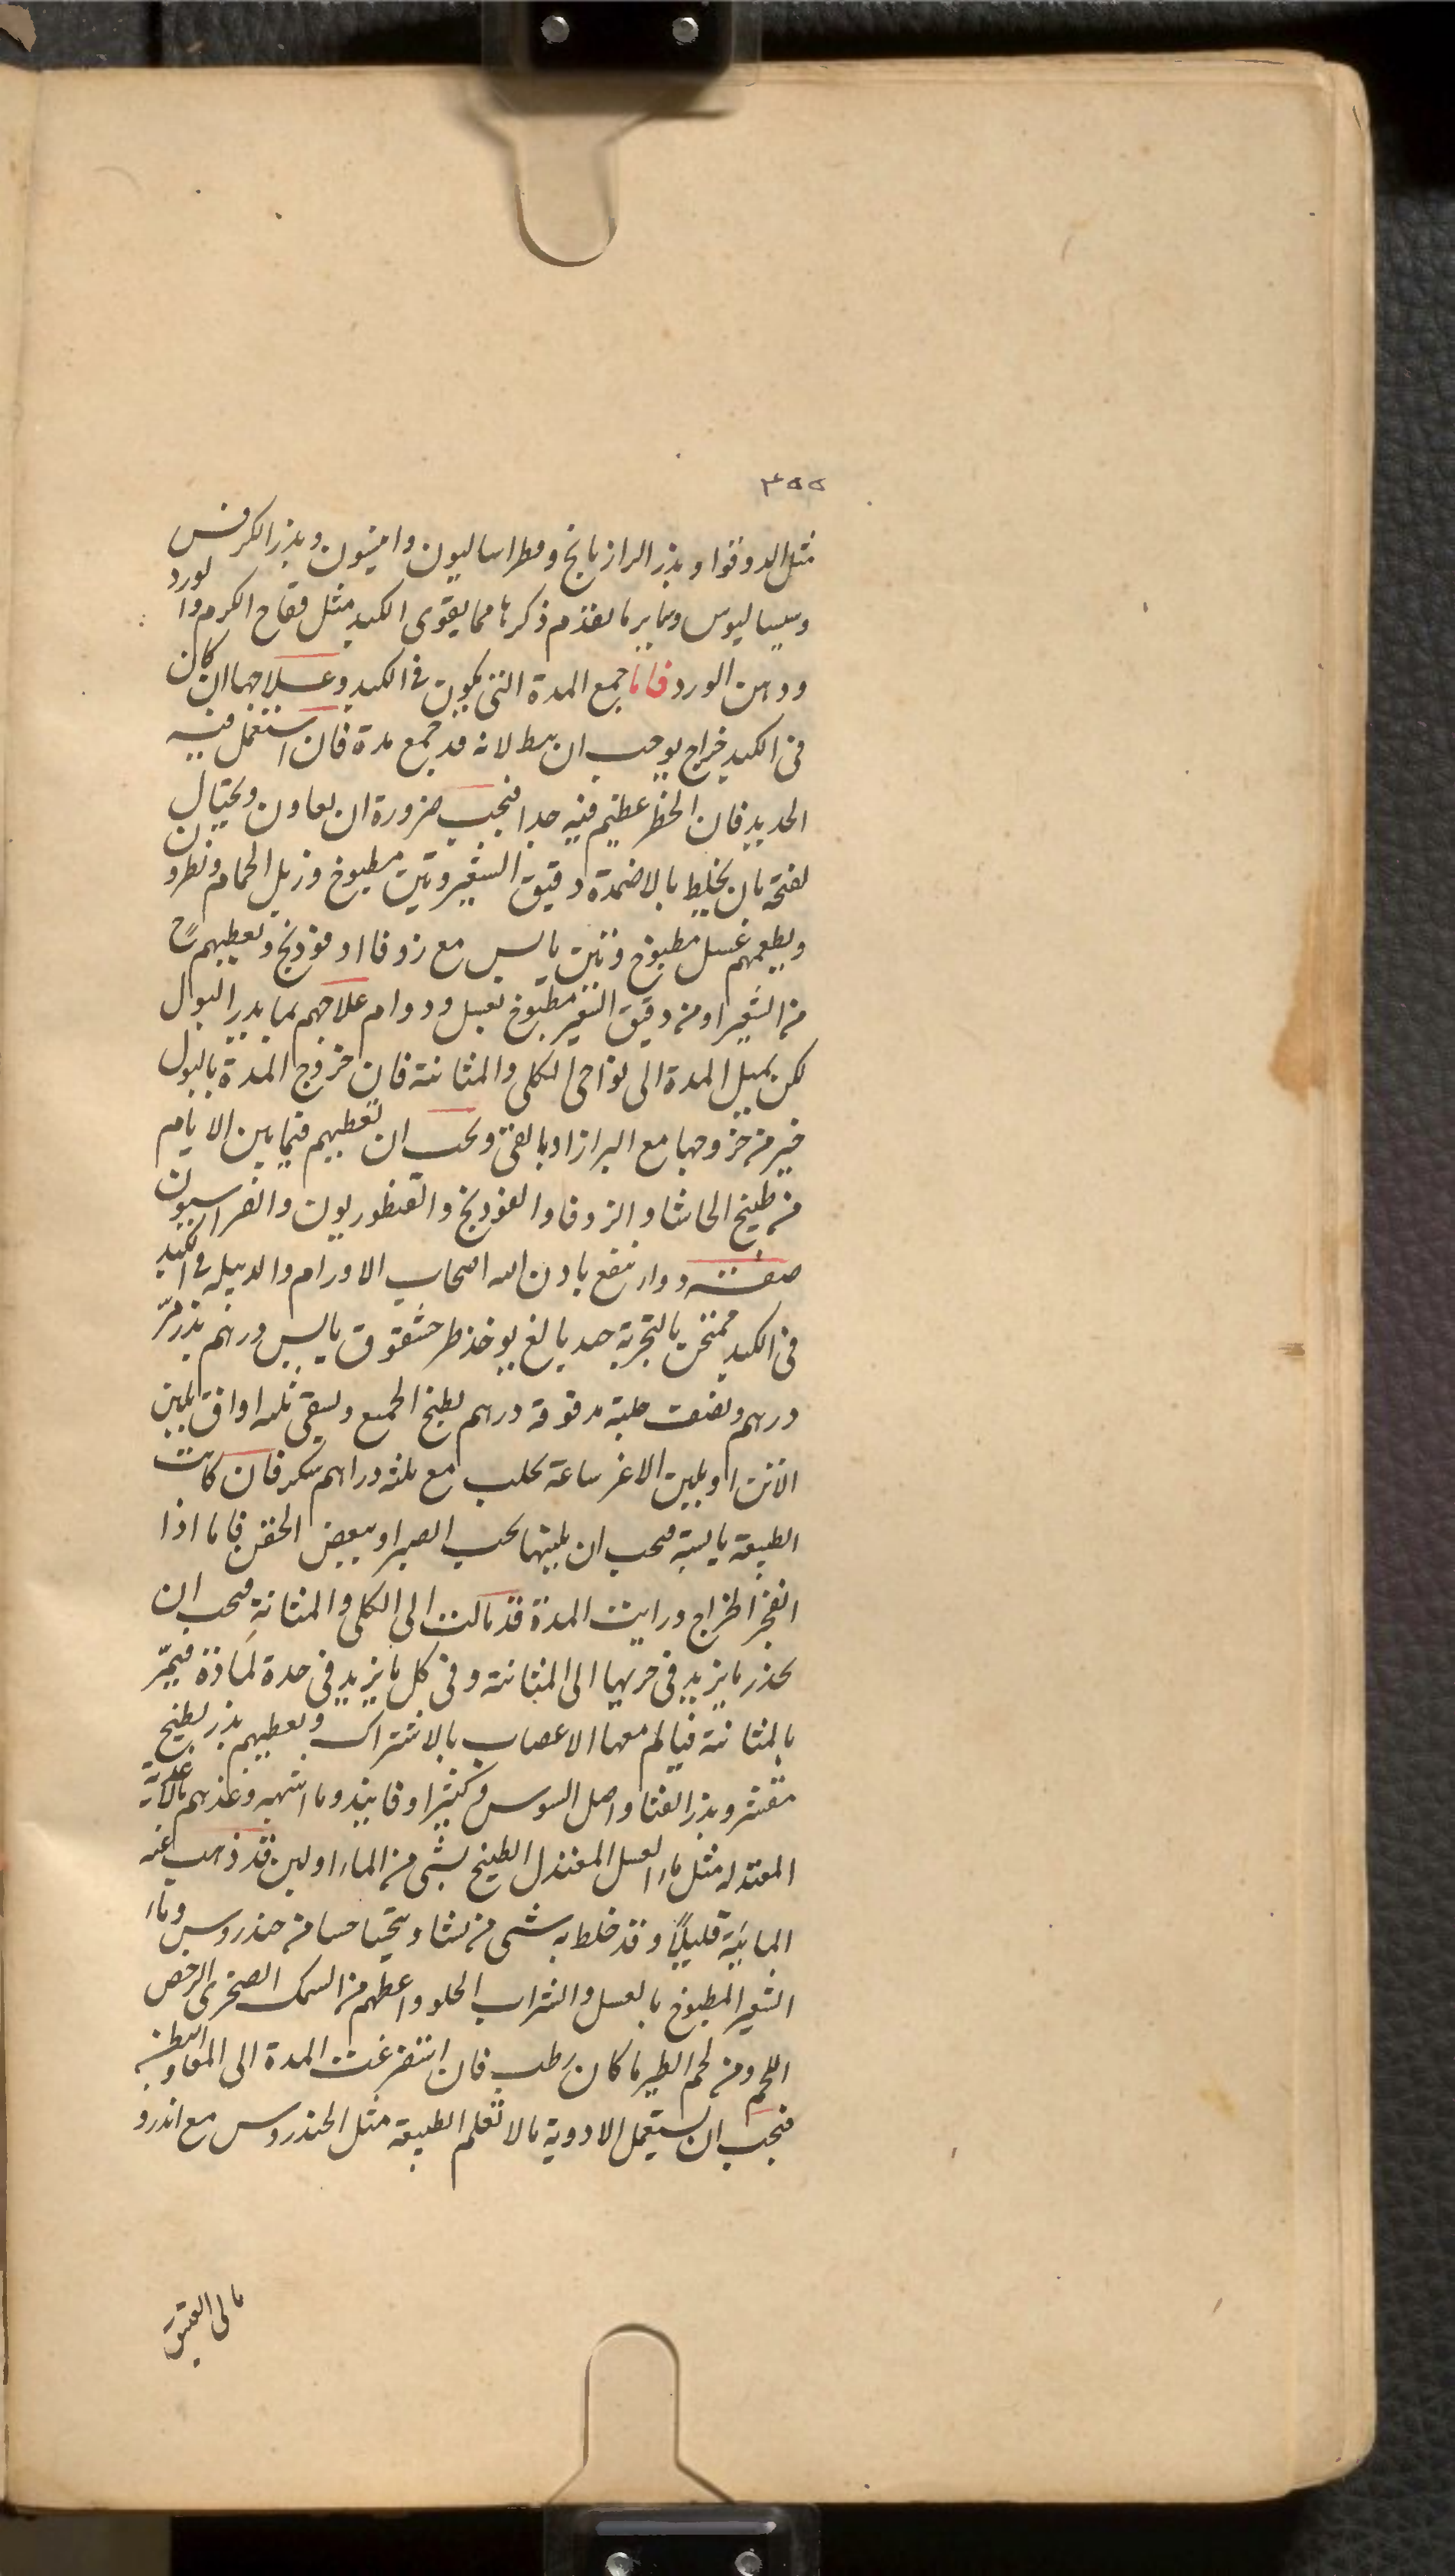 ٣٥٥
مثل الدوقوا وبذر الرازيانج وفطراساليون وانيسون وبذر الكرفس
وسيساليوس وساير ما تقدم ذكرها مما يقوى الكبد مثل فقاح الكرم والورد
ودهن الورد فاما جمع المدة التى يكون فى الكبد وعلاجها ان كان
فى الكبد خراج يوجب ان يبط لانه قد جمع مدة فان استعمل فيه
الحديد فان الخطر عظيم فيه جدا فيجب ضرورة ان يعاون ويحتال
لفتحه بان يخلط بالاضمدة دقيق الشعير وتين مطبوخ وزبل الحمام ونطرون
ويطعمهم عسل مطبوخ وتين يابس مع زوفا او فودنج ونعطيهم
من الشعير او من دقيق الشعير مطبوخ بعسل ودوام علاجهم بما يدر البول
لكن يميل المدة الى نواحى الكلى والمثانة فان خروج المدة بالبول
خير من خروجها مع البراز او بالقئ ويجب ان نعطيهم فيما بين الايام
من طبيخ الحاشا والزوفا والفودنج والقنطوريون والفراسيون
صفة دوا ينفع باذن الله اصحاب الاورام والدبيلة فى الكبد
فى الكبد ممتحن بالتجربة جيد بالغ يوخذ طرحشقوق يابس درهم بذر مر
درهم ونصف حلبة مدقوقة درهم يطبخ الجميع ويسقى ثلثه اواق بلبن
الاتن او بلبن الاعنز ساعة يحلب مع ثلثة دراهم سكر فان كانت
الطبيعة يابسة فيجب ان يلينها بحب الصبر او ببعض الحقن فاما اذا
انفجر الخراج ورايت المدة قد مالت الى الكلى والمثانة فيجب ان
يحذر ما يزيد فى جريها الى المثانة وفى كل ما يزيد فى حدة المادة فيمر
بالمثانة فيالم معها الاعصاب بالاشتراك ونعطيهم بذر بطيخ
مقشر وبذر القثا واصل السوس وكثيرا وفانيذ وما اشبهه وغذهم بالاغذية
المعتدلة مثل ماء العسل المعتدل الطبخ بشى من الماء او لبن قد ذهب عنه
المائية قليلاً وقد خلط به شى من نشا ويتحسا حسا من حندروس وماء
الشعير المطبوخ بالعسل والشراب الحلو واعطهم من السمك الصخرى الرخص
اللحم ومن لحم الطير ما كان رطب فان استفرغت المدة الى المعا والبطن
فيجب ان يستعمل الادوية مالا تعلم الطبيعة مثل الحندروس مع اندرو
مالى العتيق